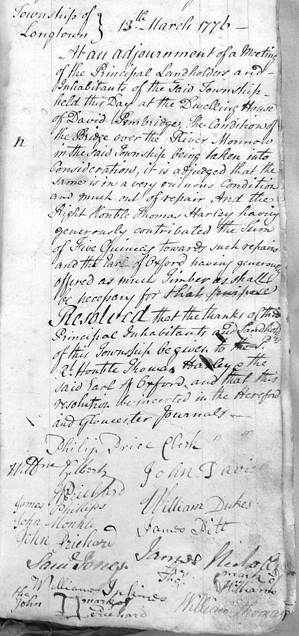 Township of
Longtown } 13th March 1776 —
At an adjournment of a Meeting
of the Principal Landholders and
Inhabitants of the Said Township
held this Day at the Dwelling House
of David Pembridge, The Condition of
the Bridge over the River Monnow
in the said Township being taken into
consideration, it is adjudged that the
same is in a very ruinous Condition
and much out of repair And the
Right Honble Thomas Harley having
generously contributed the Sum
of Five Guineas towards such repairs
and the Earl of Oxford having generously
offered as much Timber as shall
be necessary for that purpose
Resolved that the thanks of the
Principal Inhabitants and Landholders
of this Township be given to the
Rt Honble Thomas Harley & the
said Earl of Oxford, and that this
resolution be inserted in the Hereford
and Gloucester Journals —
Philip Price Clerk
Willm Gilbert John Davies
Prichard
James Phillips William Dukes
John Monkly James Pitt
John Prichard
Saml Jones James Nicholls
Thos mark of Williams
William Jenkins
the mark of
John Prichard William Thomas